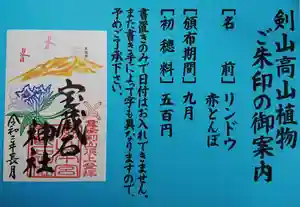 剣山高山植物
ご朱印の御案内
［名　前］リンドウ
赤とんぼ
［頒布期間］九月
［初穂料］五百円
書置きのみで日付はお入れできません。
また書き手によって字も異なりますので、
予めご了承下さい。
宝蔵石
神社
令和三年長月